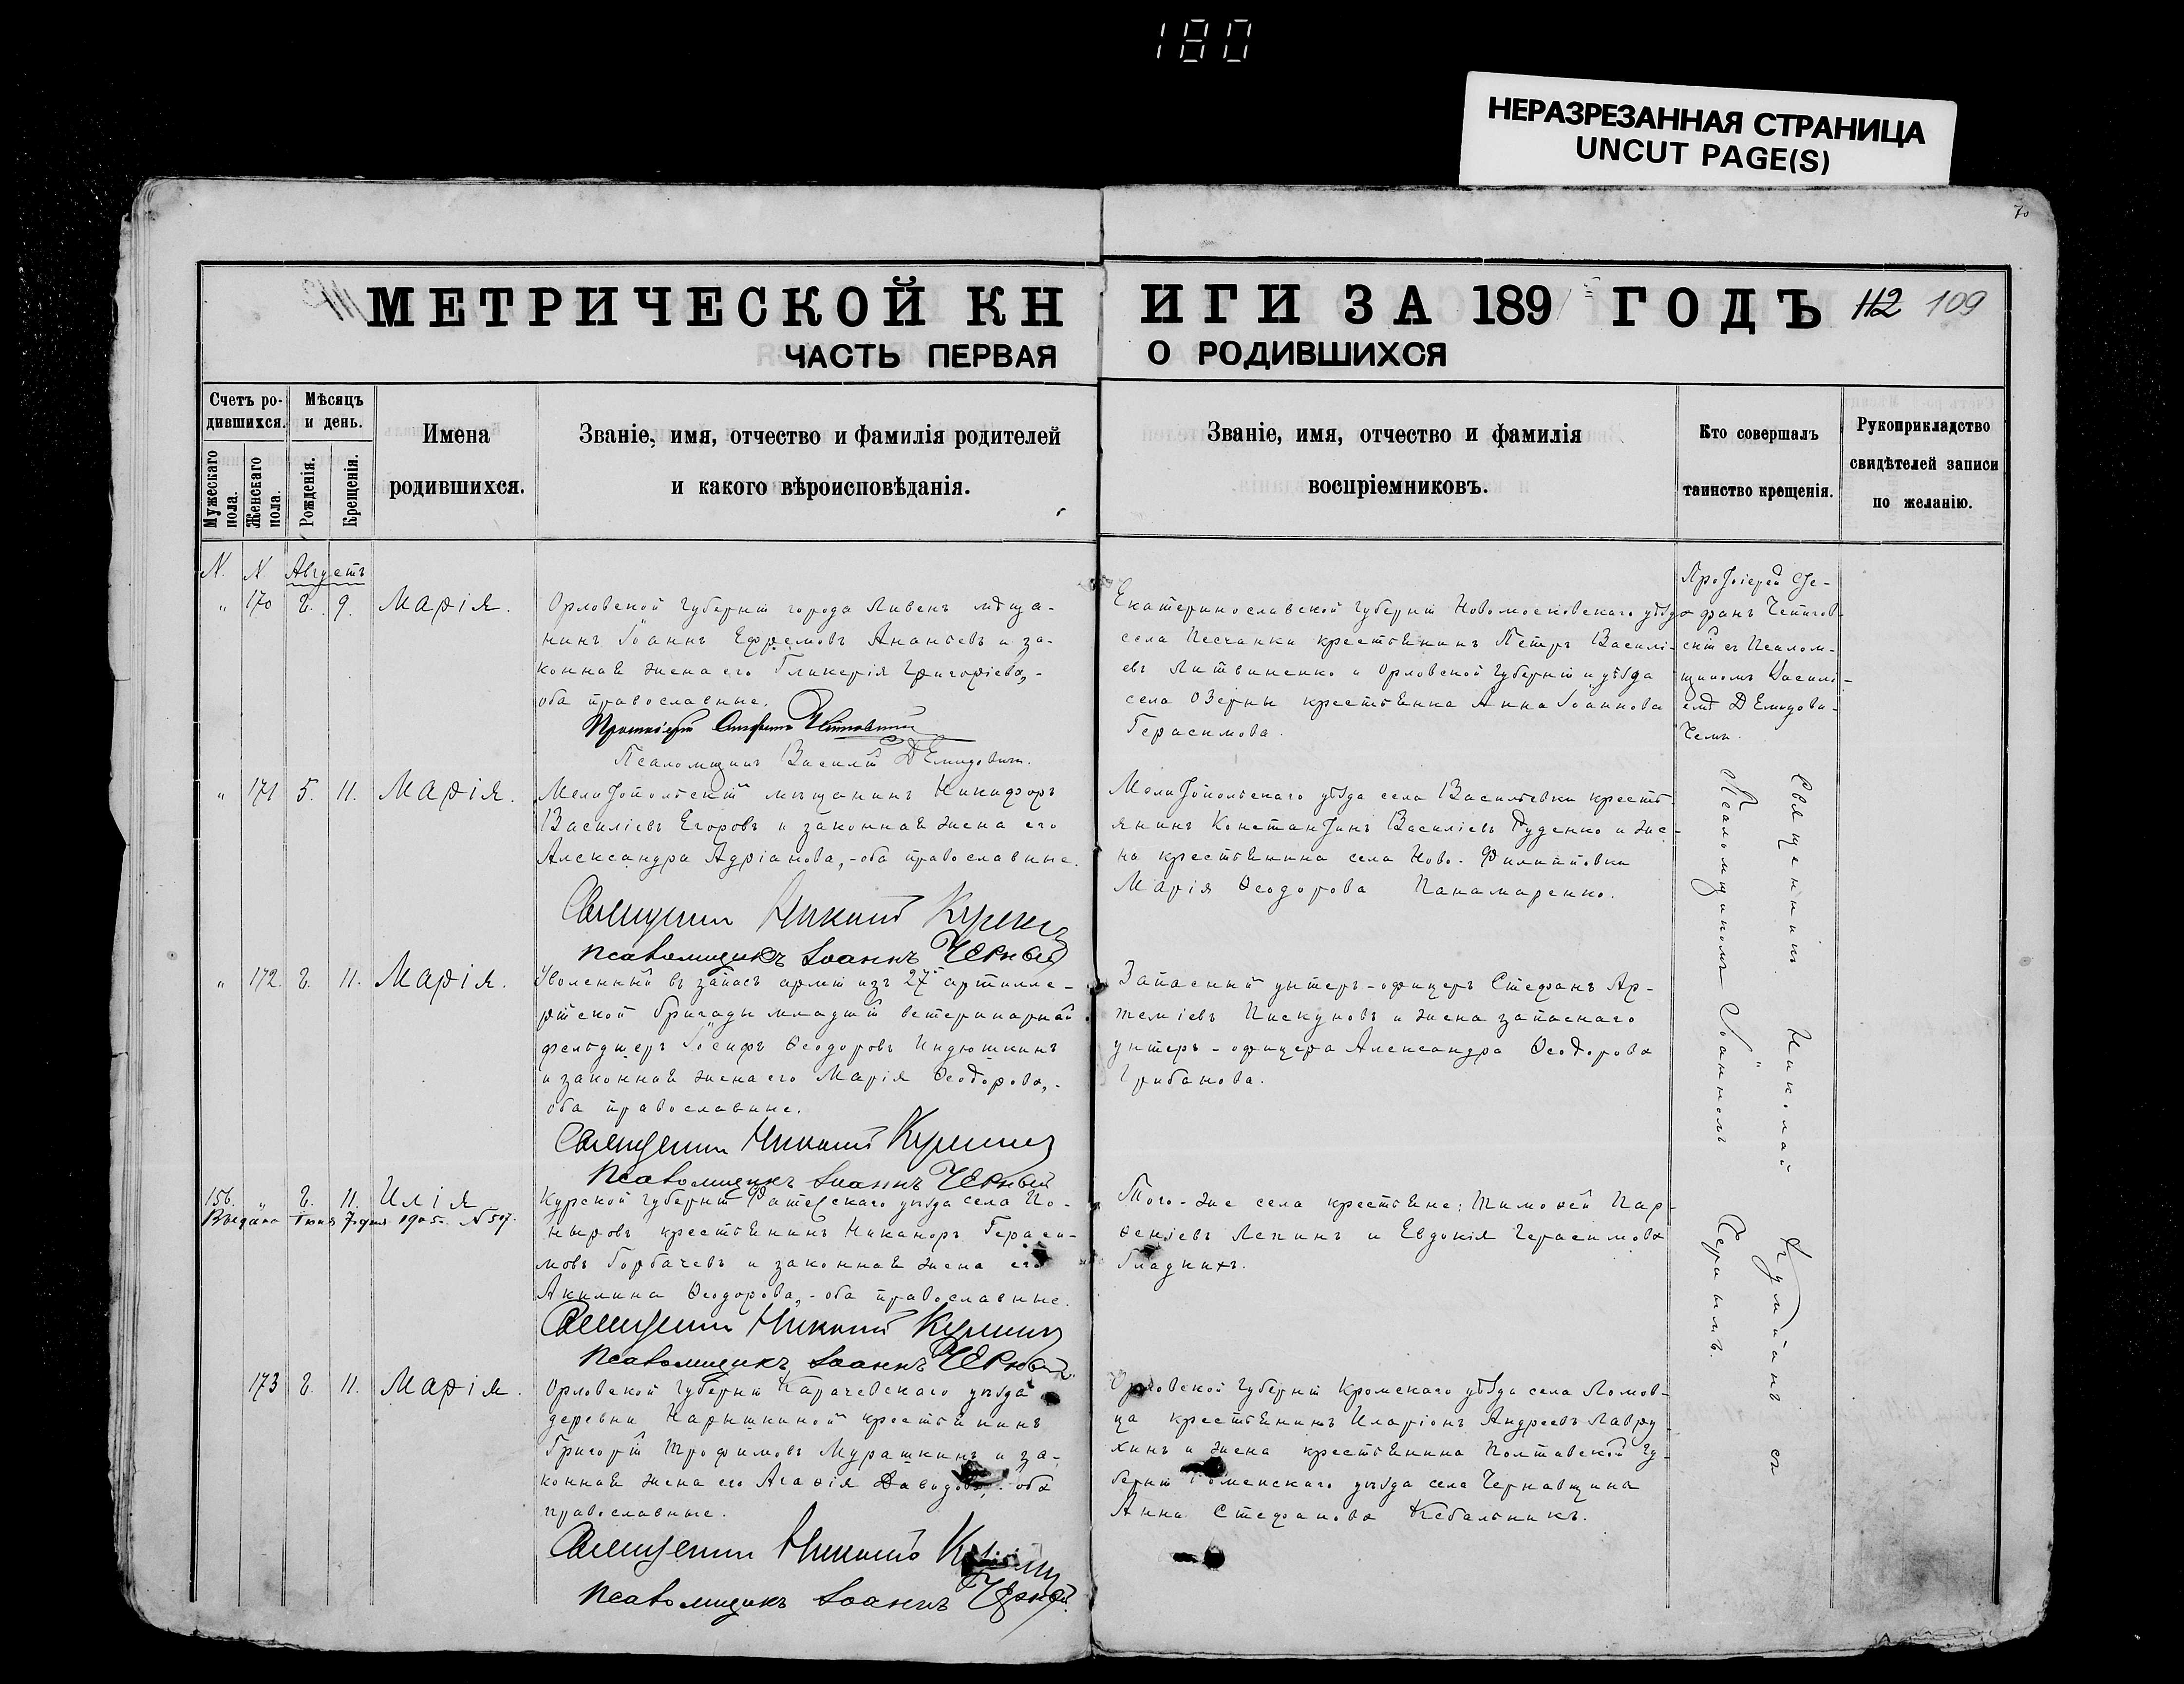 180
НЕРАЗРЕЗАННАЯ СТРАНИЦА
UNCUT PAGE(S)
70
МЕТРИЧЕСКОЙ КНИГИ ЗА 189 ГОДЪ 112 109
ЧАСТЬ ПЕРВАЯ О РОДИВШИХСЯ
Счетъ ро-
дившихся.
Мужескаго пола.
Женскаго пола.
Мѣсяцъ
и день.
Рожденія.
Крещенія.
Имена
родившихся.
Званіе, имя, отчество и фамилія родителей
и какого вѣроисповѣданія.
Званіе, имя, отчество и фамилія
воспріемниковъ.
Кто совершалъ
таинство крещенія.
Рукоприкладство
свидѣтелей записи
по желанію.
N. N Августъ
" 170 9. Марія.
Орловской губерніи города Ливенъ мѣща-
нинъ Іоаннъ Ефремовъ Ананьевъ и за-
конная жена его Гликерія Григоріева,-
оба православные.
Псаломщикъ Василій Демидовичъ.
Екатеринославской губерніи Новомосковскаго уѣзда
села Песчанки крестьянинъ Петръ Василі-
евъ Литвиненко и Орловской губерніи и уѣзда
села Озерны крестьянка Анна Іоаннова
Герасимова.
Протоіерей Сте-
фанъ
скій съ Псалом-
щикомъ Василі-
емъ Демидови-
чемъ.
" 171 5. 11. Марія.
Мелитопольскій мѣщанинъ Никифоръ
Василіевъ Егоровъ и законная жена его
Александра Адріанова,-оба православные.
Священникъ Николай
Псаломщикъ Іоаннъ Черный
Мелитопольскаго уѣзда села Васильевки кресть-
янинъ Константинъ Василіевъ Руденко и же-
на крестьянина села Ново-Филипповки
Марія Ѳеодорова Панамаренко.
" 172. 11. Марія.
Уволенный въ запасъ арміи изъ 27й артилле-
рійской бригады младшій ветеринарный
фельдшеръ Іосифъ Ѳеодоровъ Индюшкинъ
и законная жена его Марія Ѳеодорова,-
оба православные.
Священникъ Николай
Псаломщикъ Іоаннъ Черный
Запасный унтеръ-офицеръ Стефанъ Ар-
темiевъ Пискуновъ и жена запаснаго
унтеръ-офицера Александра Ѳеодорова
Грибанова.
156. " 11. Илія
1905. N 507.
Курской губерніи Фатежскаго уѣзда села По-
ныровъ крестьянинъ Никаноръ Гераси-
мовъ Горбачевъ и законная жена его
Акилина Ѳеодорова,-оба православные.
Священникъ Николай
Псаломщикъ Іоаннъ Черный
Того-же села крестьяне: Тимоѳей Пар-
ѳеніевъ Лепинъ и Евдокія Герасимова
Гладкихъ.
173 11. Марія.
Орловской губерніи Карачевскаго уѣзда
деревни Нарышкиной крестьянинъ
Григорій Трофимовъ Мурашкинъ и за-
конная жена его Агаѳія Давидова,-оба
православные.
Священникъ Николай
Псаломщикъ Іоаннъ Черный
Орловской губерніи Кромскаго уѣзда села Ломов-
ца крестьянинъ Иларіонъ Андреевъ Лавру-
хинъ и жена крестьянина Полтавской гу-
берніи Роменскаго уѣзда села Чернавщины
Анна Стефанова Кебальникъ.
Священникъ Николай съ
Псаломщикомъ Іоанномъ